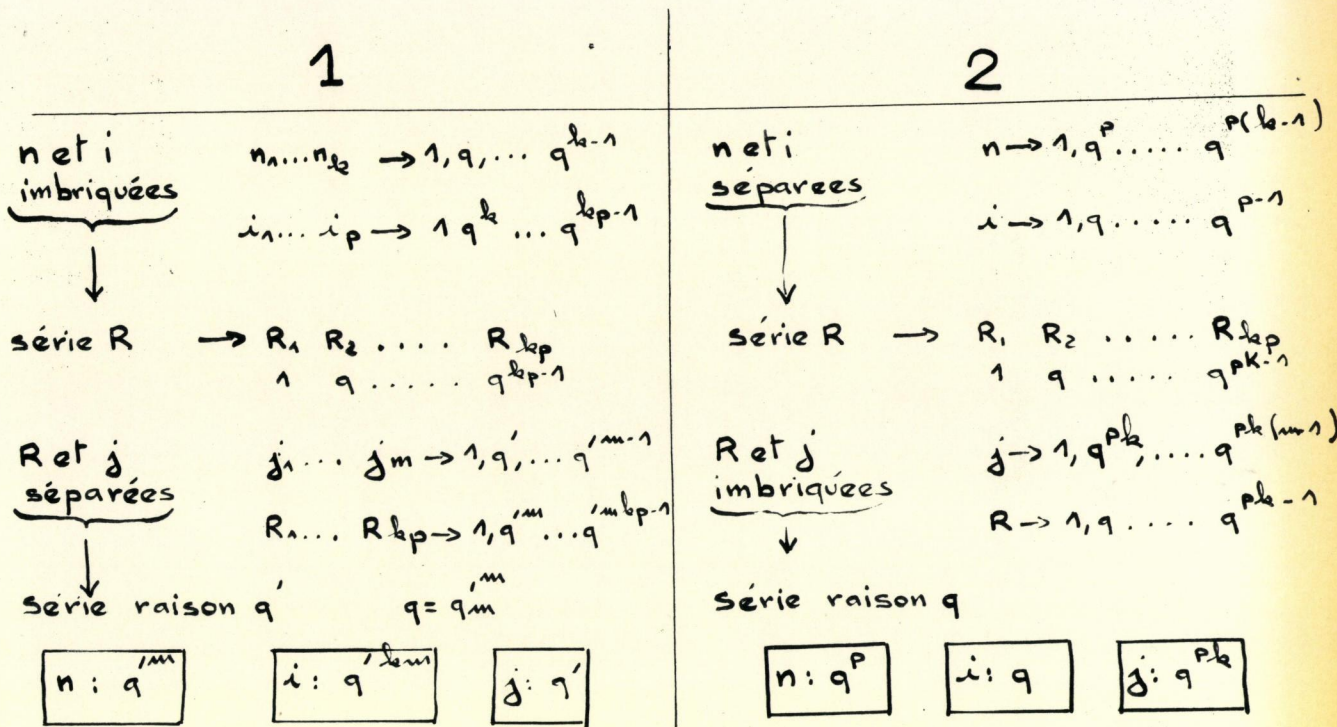 1
n et i
imbriquées
n₁...n_k → 1, q, ... q^{k-1}
i₁... i_p → 1 q^k ... q^{kp-1}
série R → R₁ R₂ .... R_{kp}
1 q ..... q^{kp-1}
R et j
séparées
j₁... jm → 1, q', ... q'^{m-1}
R₁... R_{kp} → 1, q'^m ... q'^{mkp-1}
série raison q' q = q'^m_m
n : q'^m
i : q'^{km}
j : q'
2
n et i
séparees
n → 1, q^p ..... q^{p(k-1)}
i → 1, q ..... q^{p-1}
série R → R₁ R₂ ..... R_{kp}
1 q ..... q^{pK-1}
R et j
imbriquées
j → 1, q^{pk}, .... q^{pk(m-1)}
R → 1, q .... q^{pk-1}
série raison q
n : q^p
i : q
j : q^{pk}